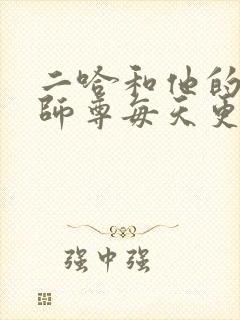 二哈和他的
师尊每天更
强中强